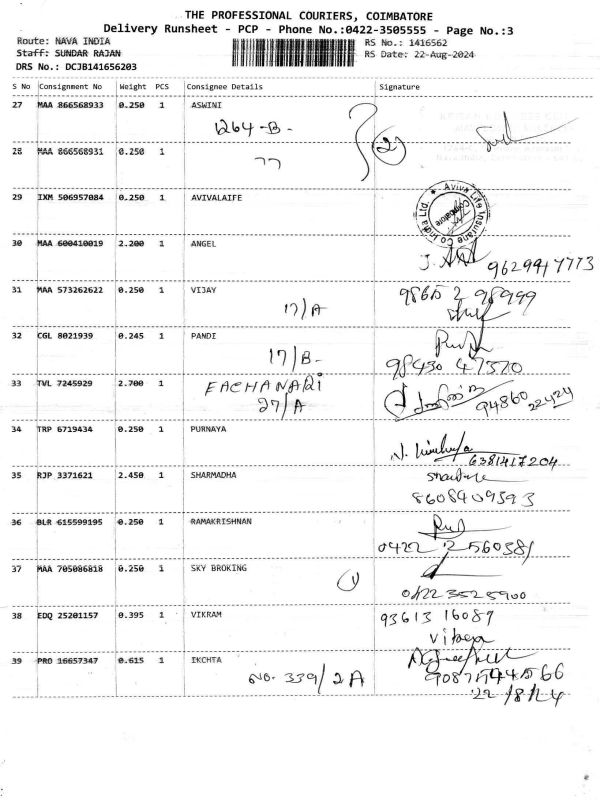 THE PROFESSIONAL COURIERS, COIMBATORE
Delivery Runsheet - PCP - Phone No.:0422-3505555 - Page No.:3
Route: NAVA INDIA
RS No.: 1416562
Staff: SUNDAR RAJAN
RS Date: 22-Aug-2024
DRS No.: DCJB141656203
S No Consignment No Weight PCS Consignee Details Signature
27 MAA 866568933 0.250 1 ASWINI
1264-B-
2
28 MAA 866568931 0.250 1
29 IXM 506957084 0.250 1 AVIVALAIFE
Aviva Life Insurance Co. India Ltd.
Coimbatore
30 MAA 600410019 2.200 1 ANGEL
9629947773
31 MAA 573262622 0.250 1 VIJAY
98652 98999
17/A
32 CGL 8021939 0.245 1 PANDI
17/B-
98430 47370
33 TVL 7245929 2.700 1 EACHANARI
27/A
94860 22424
34 TRP 6719434 0.250 1 PURNAYA
6381417204
35 RJP 3371621 2.450 1 SHARMADHA
8608409393
36 BLR 615599195 0.250 1 RAMAKRISHNAN
0422 2560381
37 MAA 705086818 0.250 1 SKY BROKING
1
0422 3525900
38 EDQ 25201157 0.395 1 VIKRAM
93613 16089
39 PRO 16657347 0.615 1 IKCHTA
No. 339/2A
22/8/24